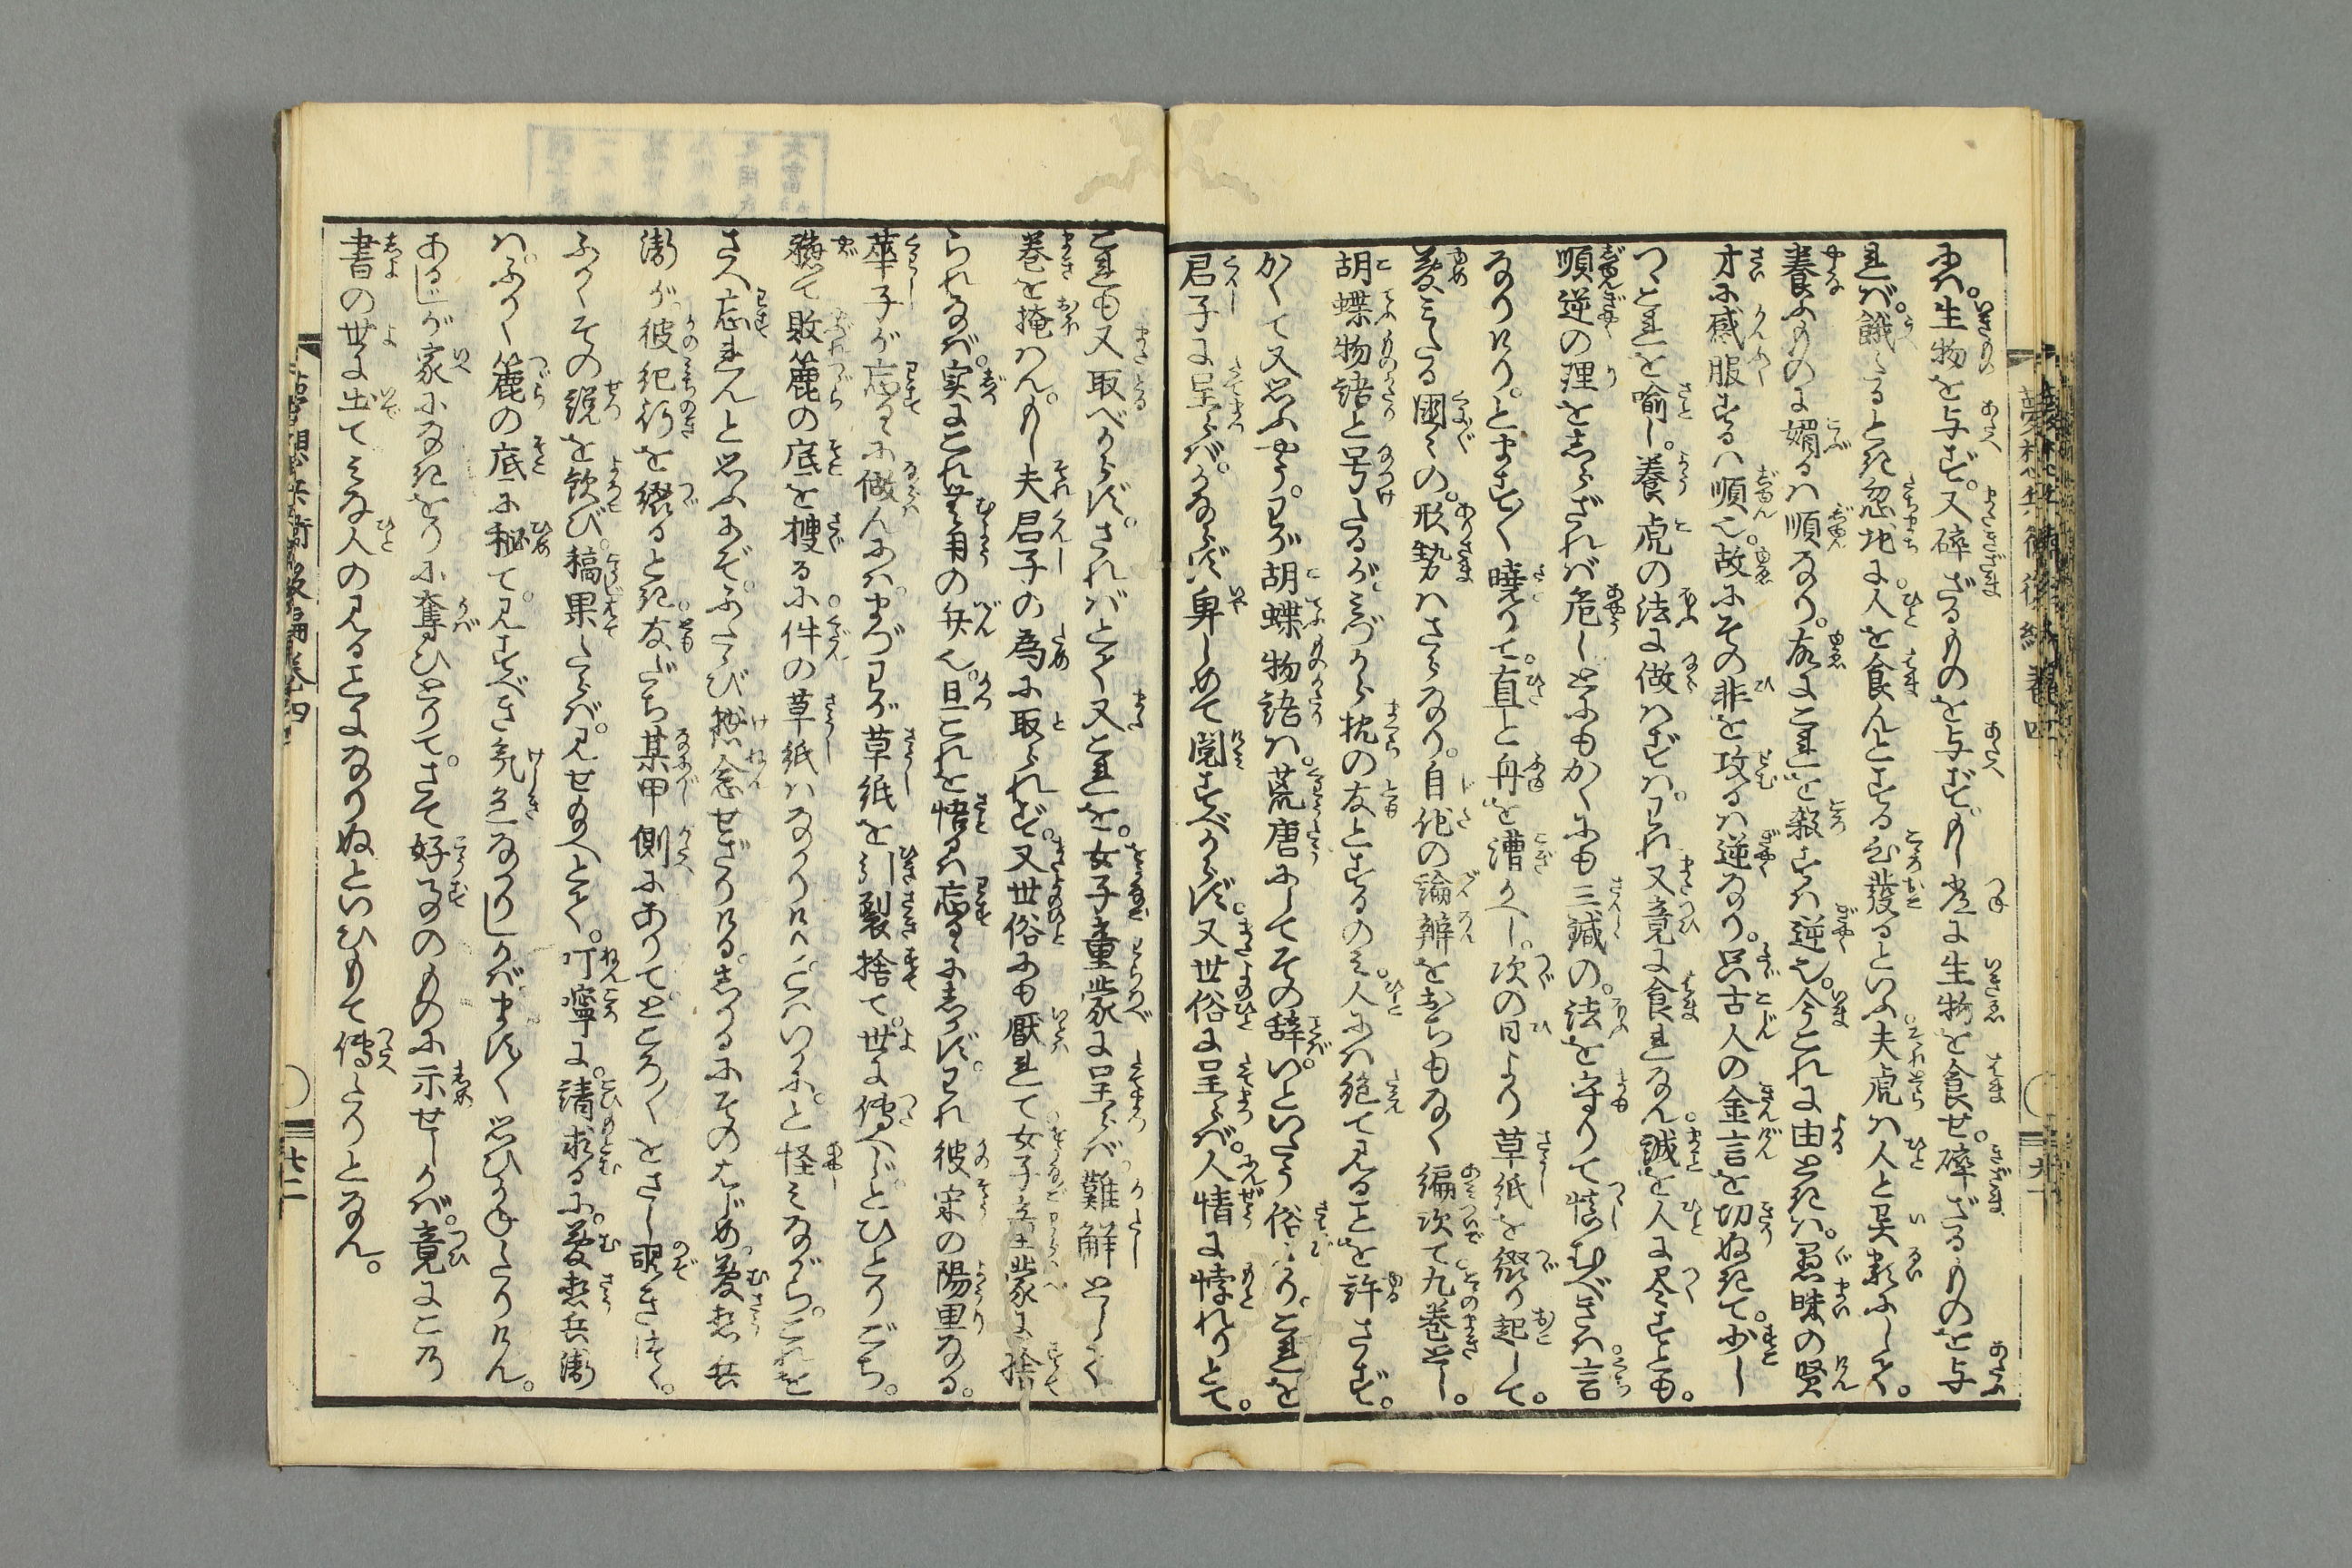 ねバ。生物を与ず。又碎ざるものを与ず。もし常に生物を食せ。碎ざるものを与
れバ。餓たるとき忽地に人を食んとする心発るといふ夫虎ハ人と異類にして。
養ふものに媚るハ順なり。故にこれを殺するハ逆也。今これに由ときハ。愚昧の賢
才に感服するハ順也。故にその非を攻るハ逆なり。只古人の金言を切ぬきて。少し
つゝこれを喩し。養虎の法に做ハずハ。われ又竟に食れなん。誠を人に尽すとも。
順逆の理をしらざれバ危しといふもかくにも三鍼の。法を守りて慎むべきハ言
なりけり。とまうすく暁りて。直と舟を漕かへし。次の日より草紙を綴り起して。
夢ミたる国々の。形勢ハさらなり。自他の論辨をおちもなく編次て九巻とし。
胡蝶物語と号たるがミづから枕の友とするのミ。人にハ絶て見ることを許さず。
かくて又思ふやう。わが胡蝶物語ハ。荒唐にしてその辞。いといたう俗びたり。これを
君子に呈らバ。かならず卑しめて閲すべからず。又世俗に呈らバ。人情に悖れりとて。
これも又取べからず。さればとて又これを。女子童蒙に呈らバ難解としく
巻を掩ハん。もし夫君子の為に取られず。又世俗にも厭れて女子童蒙に捨
られなバ。実にこれ無用の弁也。且これを悟るハ忘るゝにしかず。われ彼宋の陽里なる。
華子が忘るゝに做んにハ。まづわが草紙を引裂捨て。世に伝へじとひとりごち。
聴て敗簏の底を捜るに。件の草紙ハなかりけり。こハいかに。と怪ミながら。これを
さへ忘れんと思ふにぞ。ふたゝび掛念せざりける。しかるにその友ぢめ。夢想兵
衛が。彼紀行を綴るとき友だち某甲側にありてところ〴〵をさし覗きつゝ。
ふかくその説を歓び。稿果たらバ。見せ給へとて。叮嚀に。請求るに。夢想兵衛
ハ。ふかく簏の底に秘て。見すべき気色なかりしかバまたく思ひかねたりけん。
あるじが家になきをりに奪ひとりて。さて好るものに示せしかバ。竟にこの
書の世に出てミな人の見ることになりぬといひもて伝たりとなん。
夢想兵衛後編巻四